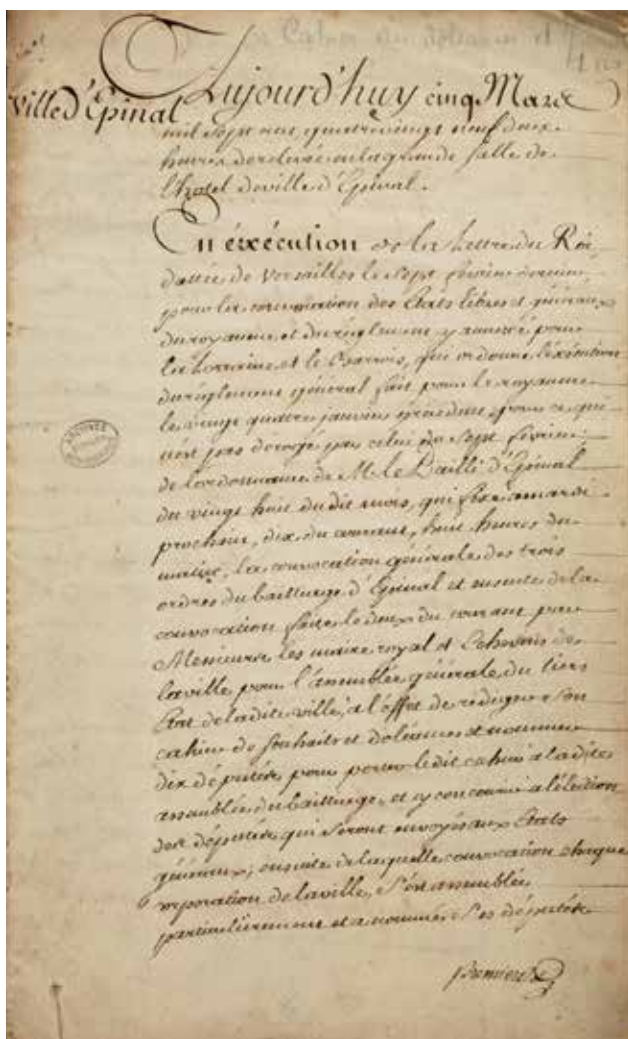 Le Cahier des doléances et
Ville d'Épinal
Aujourd'huy cinq Mars
mil sept cent quatre vingt neuf deux
heures de relevée en la grande salle de
l'hotel de ville d'Épinal.
En éxécution de la Lettre du Roi
dattée de Versailles le sept fevrier dernier
pour la convocation des Etats libres et généraux
du royaume, et du règlement y annexé pour
la Lorraine et le Barrois, qui ordonne l'exécution
du règlement général fait pour le royaume
le vingt quatre janvier précédent, pour ce qui
n'est pas derogé par celui du sept fevrier;
de l'ordonnance de M. le Bailli d'Épinal
du vingt huit du dit mois, qui fixe a mardi
prochain, dix du courant, huit heures du
matin, la convocation générale des trois
ordres du bailliage d'Épinal et ensuite de la
convocation faite le deux du courant par
Messieurs les maire royal et Echevins de
la ville pour l'assemblée générale du tiers
Etat de la dite ville, a l'effet de rediger son
cahier de souhaits et doléances et nommer
dix députés pour porter le dit cahier a la dite
assemblée du bailliage, et y concourir a l'élection
des députés qui seront envoyés aux Etats
généraux; ensuite de laquelle convocation chaque
corporation de la ville, s'est assemblée
particulièrement et a nommé ses députés
premiere